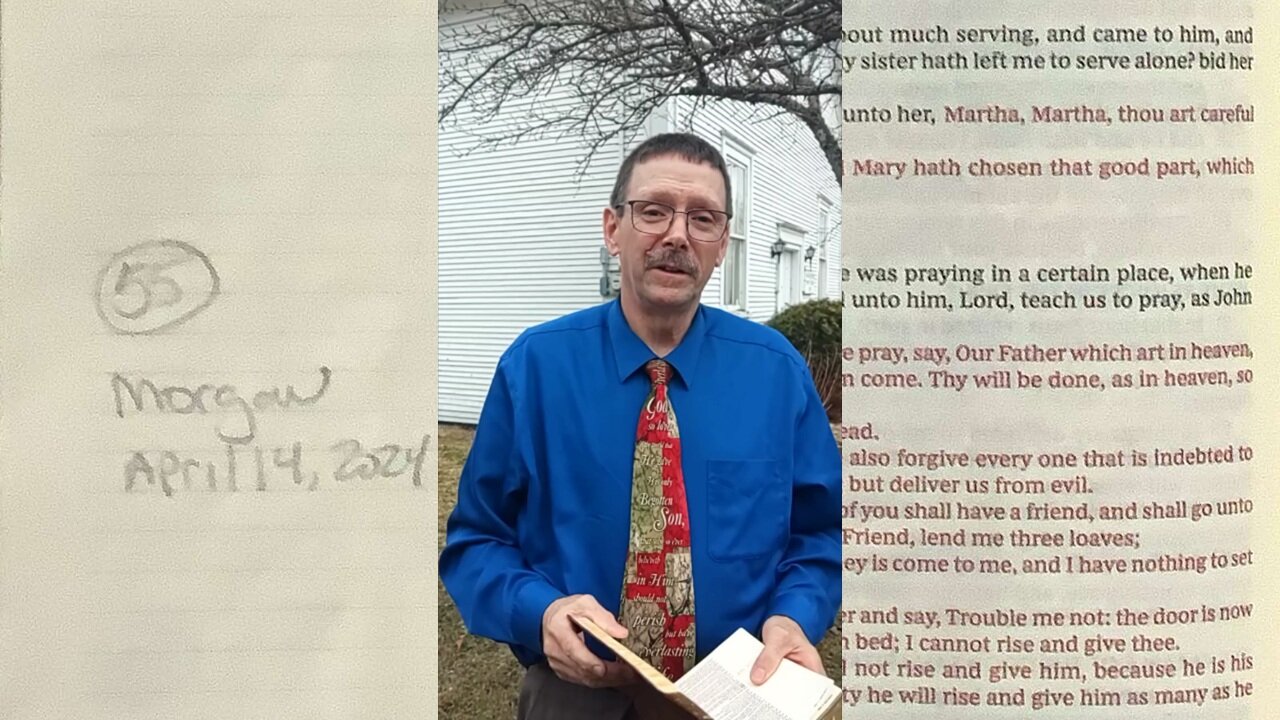 55
Morgan
April 14, 2024
God
so loved
He gave
His only
Begotten
Son,
in Him
should not
perish
but have
everlasting
out much serving, and came to him, and
y sister hath left me to serve alone? bid her
unto her, Martha, Martha, thou art careful
Mary hath chosen that good part, which
e was praying in a certain place, when he
unto him, Lord, teach us to pray, as John
e pray, say, Our Father which art in heaven,
n come. Thy will be done, as in heaven, so
ead.
also forgive every one that is indebted to
but deliver us from evil.
of you shall have a friend, and shall go unto
Friend, lend me three loaves;
ey is come to me, and I have nothing to set
er and say, Trouble me not: the door is now
n bed; I cannot rise and give thee.
not rise and give him, because he is his
ty he will rise and give him as many as he